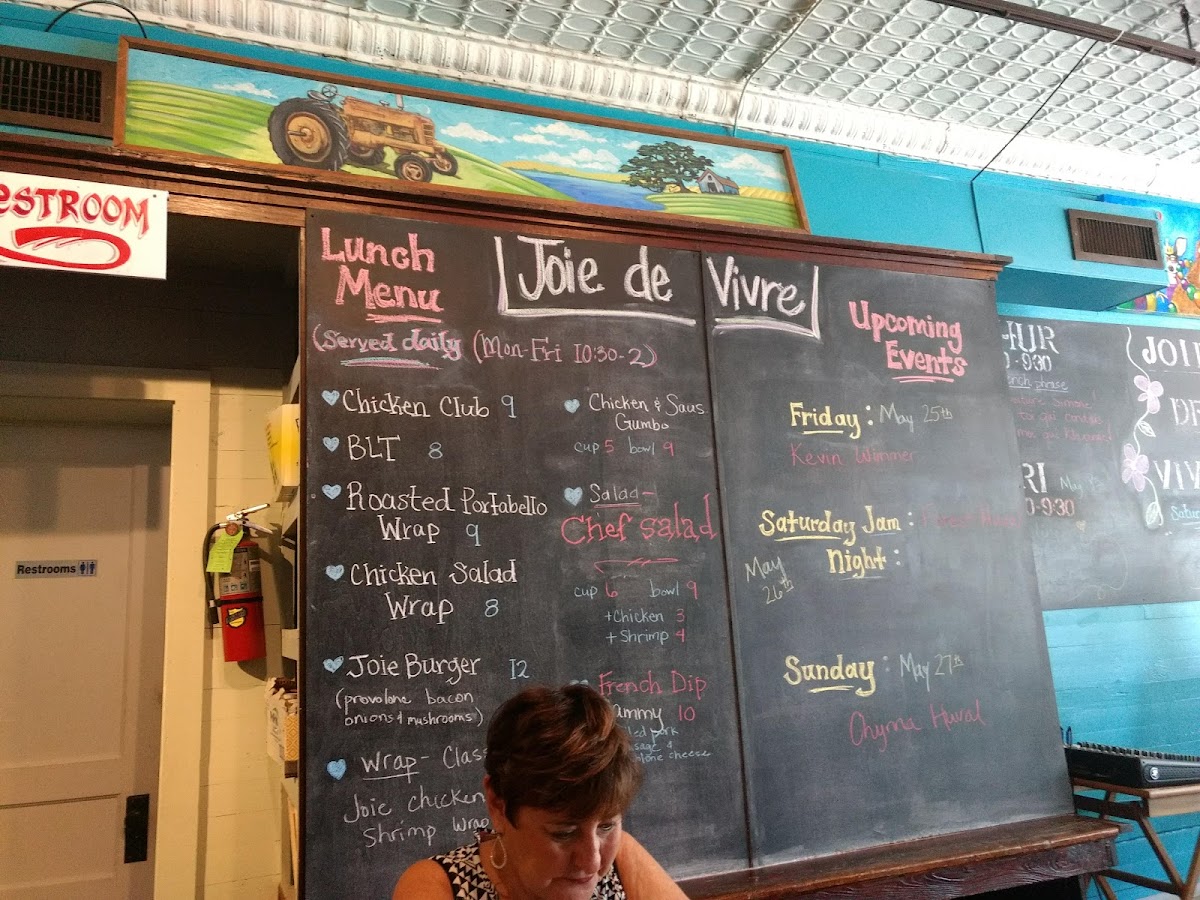 RESTROOM
Restrooms
Joie de Vivre
Lunch
Menu
(Served daily (Mon-Fri 10:30-2)
Chicken Club 9
BLT 8
Roasted Portabello
Wrap 9
Chicken Salad
Wrap 8
Joie Burger 12
(provolone bacon
onions & mushrooms)
Wrap-
Joie chicken
Shrimp Wrap
Chicken & Saus
Gumbo
cup 5 bowl 9
Salad-
Chef salad
cup 6 bowl 9
+Chicken 3
+Shrimp 4
French Dip
10
pork
cheese
Upcoming
Events
Friday: May 25th
Kevin Wimmer
Saturday Jam:
Night:
May
26th
Sunday: May 27th
Chyma Huval
9:30
French phrase
May
0-9:30